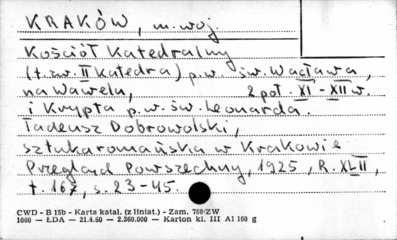 KRAKÓW, m. woj.
Kościół Katedralny
(t.zw. II Katedra) p.w. św. Wacława,
na Wawelu, 2 poł. XI - XII w.
i Krypta p.w. św. Leonarda.
Tadeusz Dobrowolski,
sztuka romańska w Krakowie.
Przegląd Powszechny, 1925, R. XLII,
t. 167, s. 23-45.
CWD - B 15b - Karta katal. (z liniat.) - Zam. 788/ZW
1060 — ŁDA — 21.4.60 — 2.360.000 — Karton kl. III A1 160 g